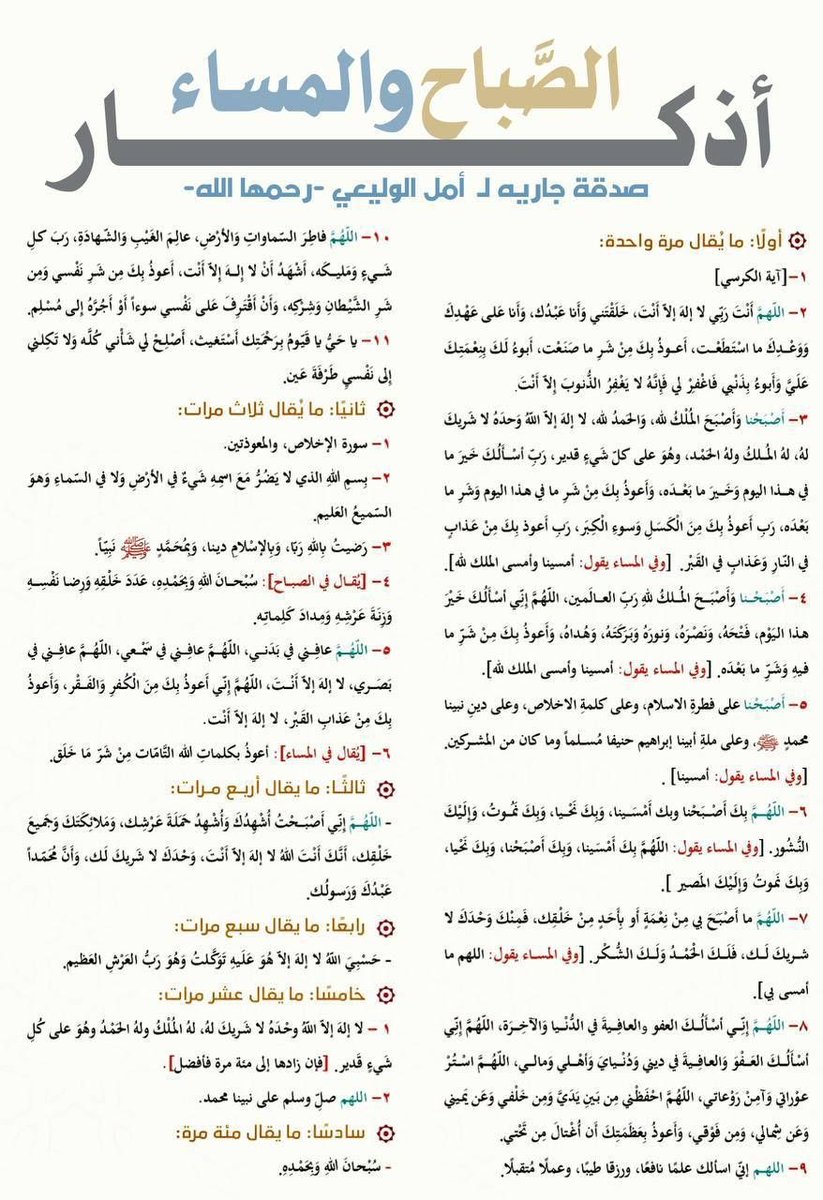 أذكار
الصَّباح والمساء
صدقة جاريه لـ أمل الوليعي -رحمها الله-
أولًا: ما يُقال مرة واحدة:
١- [آية الكرسي]
٢- اللّهمَّ أَنْتَ رَبِّي لا إلهَ إلاّ أَنْتَ، خَلَقْتَني وَأَنا عَبْدُك، وَأَنا عَلى عَهْدِكَ
وَوَعْدِكَ ما اسْتَطَعْت، أَعـوذُ بِكَ مِنْ شَرِ ما صَنَعْت، أَبوءُ لَكَ بِنِعْمَتِكَ
عَلَيَّ وَأَبوءُ بِذَنْبي فَاغْفِرْ لي فَإِنَّهُ لا يَغْفِرُ الذُّنوبَ إِلاّ أَنْتَ.
٣- أَصْبَحْنا وَأَصْبَحَ الْمُلْكُ لله، وَالحَمدُ لله، لا إلهَ إلاّ اللّهُ وَحدَهُ لا شَريكَ
لهُ، لهُ المُـلكُ ولهُ الحَمْد، وهُوَ على كلّ شَيءٍ قدير، رَبِّ أسْـأَلُـكَ خَيرَ ما
في هـذا اليوم وَخَـيرَ ما بَعْـدَه، وَأَعـوذُ بِكَ مِنْ شَرِ ما في هـذا اليوم وَشَرِ ما
بَعْدَه، رَبِ أَعوذُ بِكَ مِنَ الْكَسَلِ وَسوءِ الْكِبَر، رَبِ أعوذ بكَ مِنْ عَذابٍ
في النّارِ وَعَذابٍ في القَبْر. [وفي المساء يقول: أمسينا وأمسى الملك لله].
٤- أَصْبَحْـنـا وَأَصْبَـحَ المُـلكُ للهِ رَبِّ العـالَمـين، اللهُمَّ إِنِّي أسْأَلُكَ خَيْرَ
هذا اليَوْم، فَتْحَهُ، وَنَصْرَهُ، وَنورَهُ وَبَرَكَتَهُ، وَهُداهُ، وَأَعوذُ بِكَ مِنْ شَرِّ ما
فيهِ وَشَرِّ ما بَعْدَه. [وفي المساء يقول: أمسينا وأمسى الملك لله].
٥- أَصْبَحْنا على فطرةِ الاسلام، وعلى كلمةِ الاخلاص، وعلى دينِ نبينا
محمدٍ ﷺ، وعلى ملةِ أبينا إبراهيم حنيفا مُسـلماً وما كان من المشـركين.
[وفي المساء يقول: أمسينا].
٦- اللّهُـمَّ بِكَ أَصْـبَحْنا وبك أمْسَـينا، وَبِكَ نَحْـيا، وَبِكَ نَمُـوتُ، وَإِلَيْكَ
النُّشُور. [وفي المساء يقول: اللّهُمَّ بِكَ أَمْسَينا، وَبِكَ أَصْبَحْنا، وَبِكَ نَحْيا،
وَبِكَ نَموتُ وَإِلَيْكَ المَصير ].
٧- اللّهُمَّ ما أَصْبَحَ بي مِنْ نِعْمَةٍ أَو بِأَحَدٍ مِنْ خَلْقِك، فَمِنْكَ وَحْدَكَ لا
شريكَ لَـك، فَلَـكَ الْحَمْـدُ وَلَـكَ الشُّكْـر. [وفي المسـاء يقول: اللهم ما
أمسى بي].
٨- اللّهُـمَّ إِنِّـي أسْألُـكَ العفو والعافِيةَ في الدُّنْيا وَالآخِـرَة، اللّهُمَّ إِنِّي
أسْألُـكَ العَـفْـوَ وَالعافِيـةَ في ديني وَدُنْيايَ وَأَهْـلي وَمالـي، اللّهُـمَّ اسْـتُـرْ
عوْراتي وَآمِنْ رَوْعاتي، اللّهُمَّ احْفَظْني مِن بَينِ يَدَيَّ وَمِن خَلْفي وَعَن يَميني
وَعَن شِمالي، وَمِن فَوْقي، وَأَعوذُ بِعَظَمَتِكَ أَن أُغْتالَ مِن تَحْتي.
٩- اللهـم إنّي اسألك علمًا نافعًا، ورزقا طيبًا، وعملًا مُتقبلًا.
١٠- اللّهُمَّ فاطِرَ السّماواتِ وَالأرْضِ، عالِمَ الغَيْبِ وَالشّهادَةِ، رَبَ كلِ
شَـيءٍ وَمَليـكَه، أَشْهَدُ أَنْ لا إِلـهَ إِلاّ أَنْت، أَعوذُ بِكَ مِن شَرِ نَفْسي وَمِن
شَرِ الشَّيْطانِ وَشِرْكِه، وَأَنْ أَقْتَرِفَ عَلى نَفْسي سوءاً أَوْ أَجُرَّهُ إلى مُسْلِم.
١١- يا حَيُّ يا قَيّومُ بِرَحْمَتِكَ أَسْتَغيث، أَصْلِحْ لي شَأني كُلَّه وَلا تَكِلني
إلى نَفْسي طَرْفَةَ عَين.
ثانيًا: ما يُقال ثلاث مرات:
١- سورة الإخلاص، والمعوذتين.
٢- بِسمِ اللهِ الذي لا يَضُرُّ مَعَ اسمِهِ شَيءٌ في الأرْضِ وَلا في السّماءِ وَهوَ
السّميعُ العَليم.
٣- رَضيتُ بِاللهِ رَبّا، وَبِالإسْلامِ دينا، وَبِمُحَمَّدٍ ﷺ نَبِيّاً.
٤- [يُقـال في الصبـاح]: سُبْـحـانَ اللهِ وَبِحَمْدِهِ، عَدَدَ خَلْقِهِ وَرِضا نَفْسِـهِ
وَزِنَةَ عَرْشِهِ وَمِدادَ كَلِماتِه.
٥- اللّهُـمَّ عافِني في بَدَني، اللّهُـمَّ عافِـني في سَمْـعي، اللّهُـمَّ عافِـني في
بَصَـري، لا إلهَ إلاّ أَنْـتَ، اللّهُـمَّ إِنّي أَعوذُ بِكَ مِنَ الْكُـفرِ وَالفَـقْر، وَأَعوذُ
بِكَ مِنْ عَذابِ القَبْر، لا إلهَ إلاّ أَنْت.
٦- [يُقال في المساء]: أعوذُ بكلماتِ الله التَّامّات مِنْ شَرّ مَا خَلَق.
ثالثًـا: ما يقال أربـع مـرات:
- اللّهُـمَّ إِنِّي أَصْبَـحْتُ أُشْهِدُكَ وَأُشْهِدُ حَمَلَةَ عَرْشِـك، وَمَلائِكَتَكَ وَجَميعَ
خَلْقِك، أَنَّكَ أَنْتَ اللهُ لا إلهَ إلاّ أَنْتَ، وَحْدَكَ لا شَريكَ لَك، وَأَنَّ مُحَمّداً
عَبْدُكَ وَرَسولُـك.
رابعًا: ما يقال سبع مرات:
- حَسْبِيَ اللّهُ لا إلهَ إلاّ هُوَ عَلَيهِ تَوَكَّلتُ وَهُوَ رَبُّ العَرْشِ العَظيم.
خامسًا: ما يقال عشر مرات:
١ - لا إلهَ إلاّ اللّهُ وحْدَهُ لا شَريكَ لهُ، لهُ المُلْكُ ولهُ الحَمْدُ وهُوَ على كُلِ
شَيءٍ قَدير. [فإن زادها إلى مئة مرة فأفضل].
٢- اللهم صلِّ وسلم على نبينا محمد.
سادسًا: ما يقال مئة مرة:
- سُبْحانَ اللهِ وَبِحَمْدِهِ.